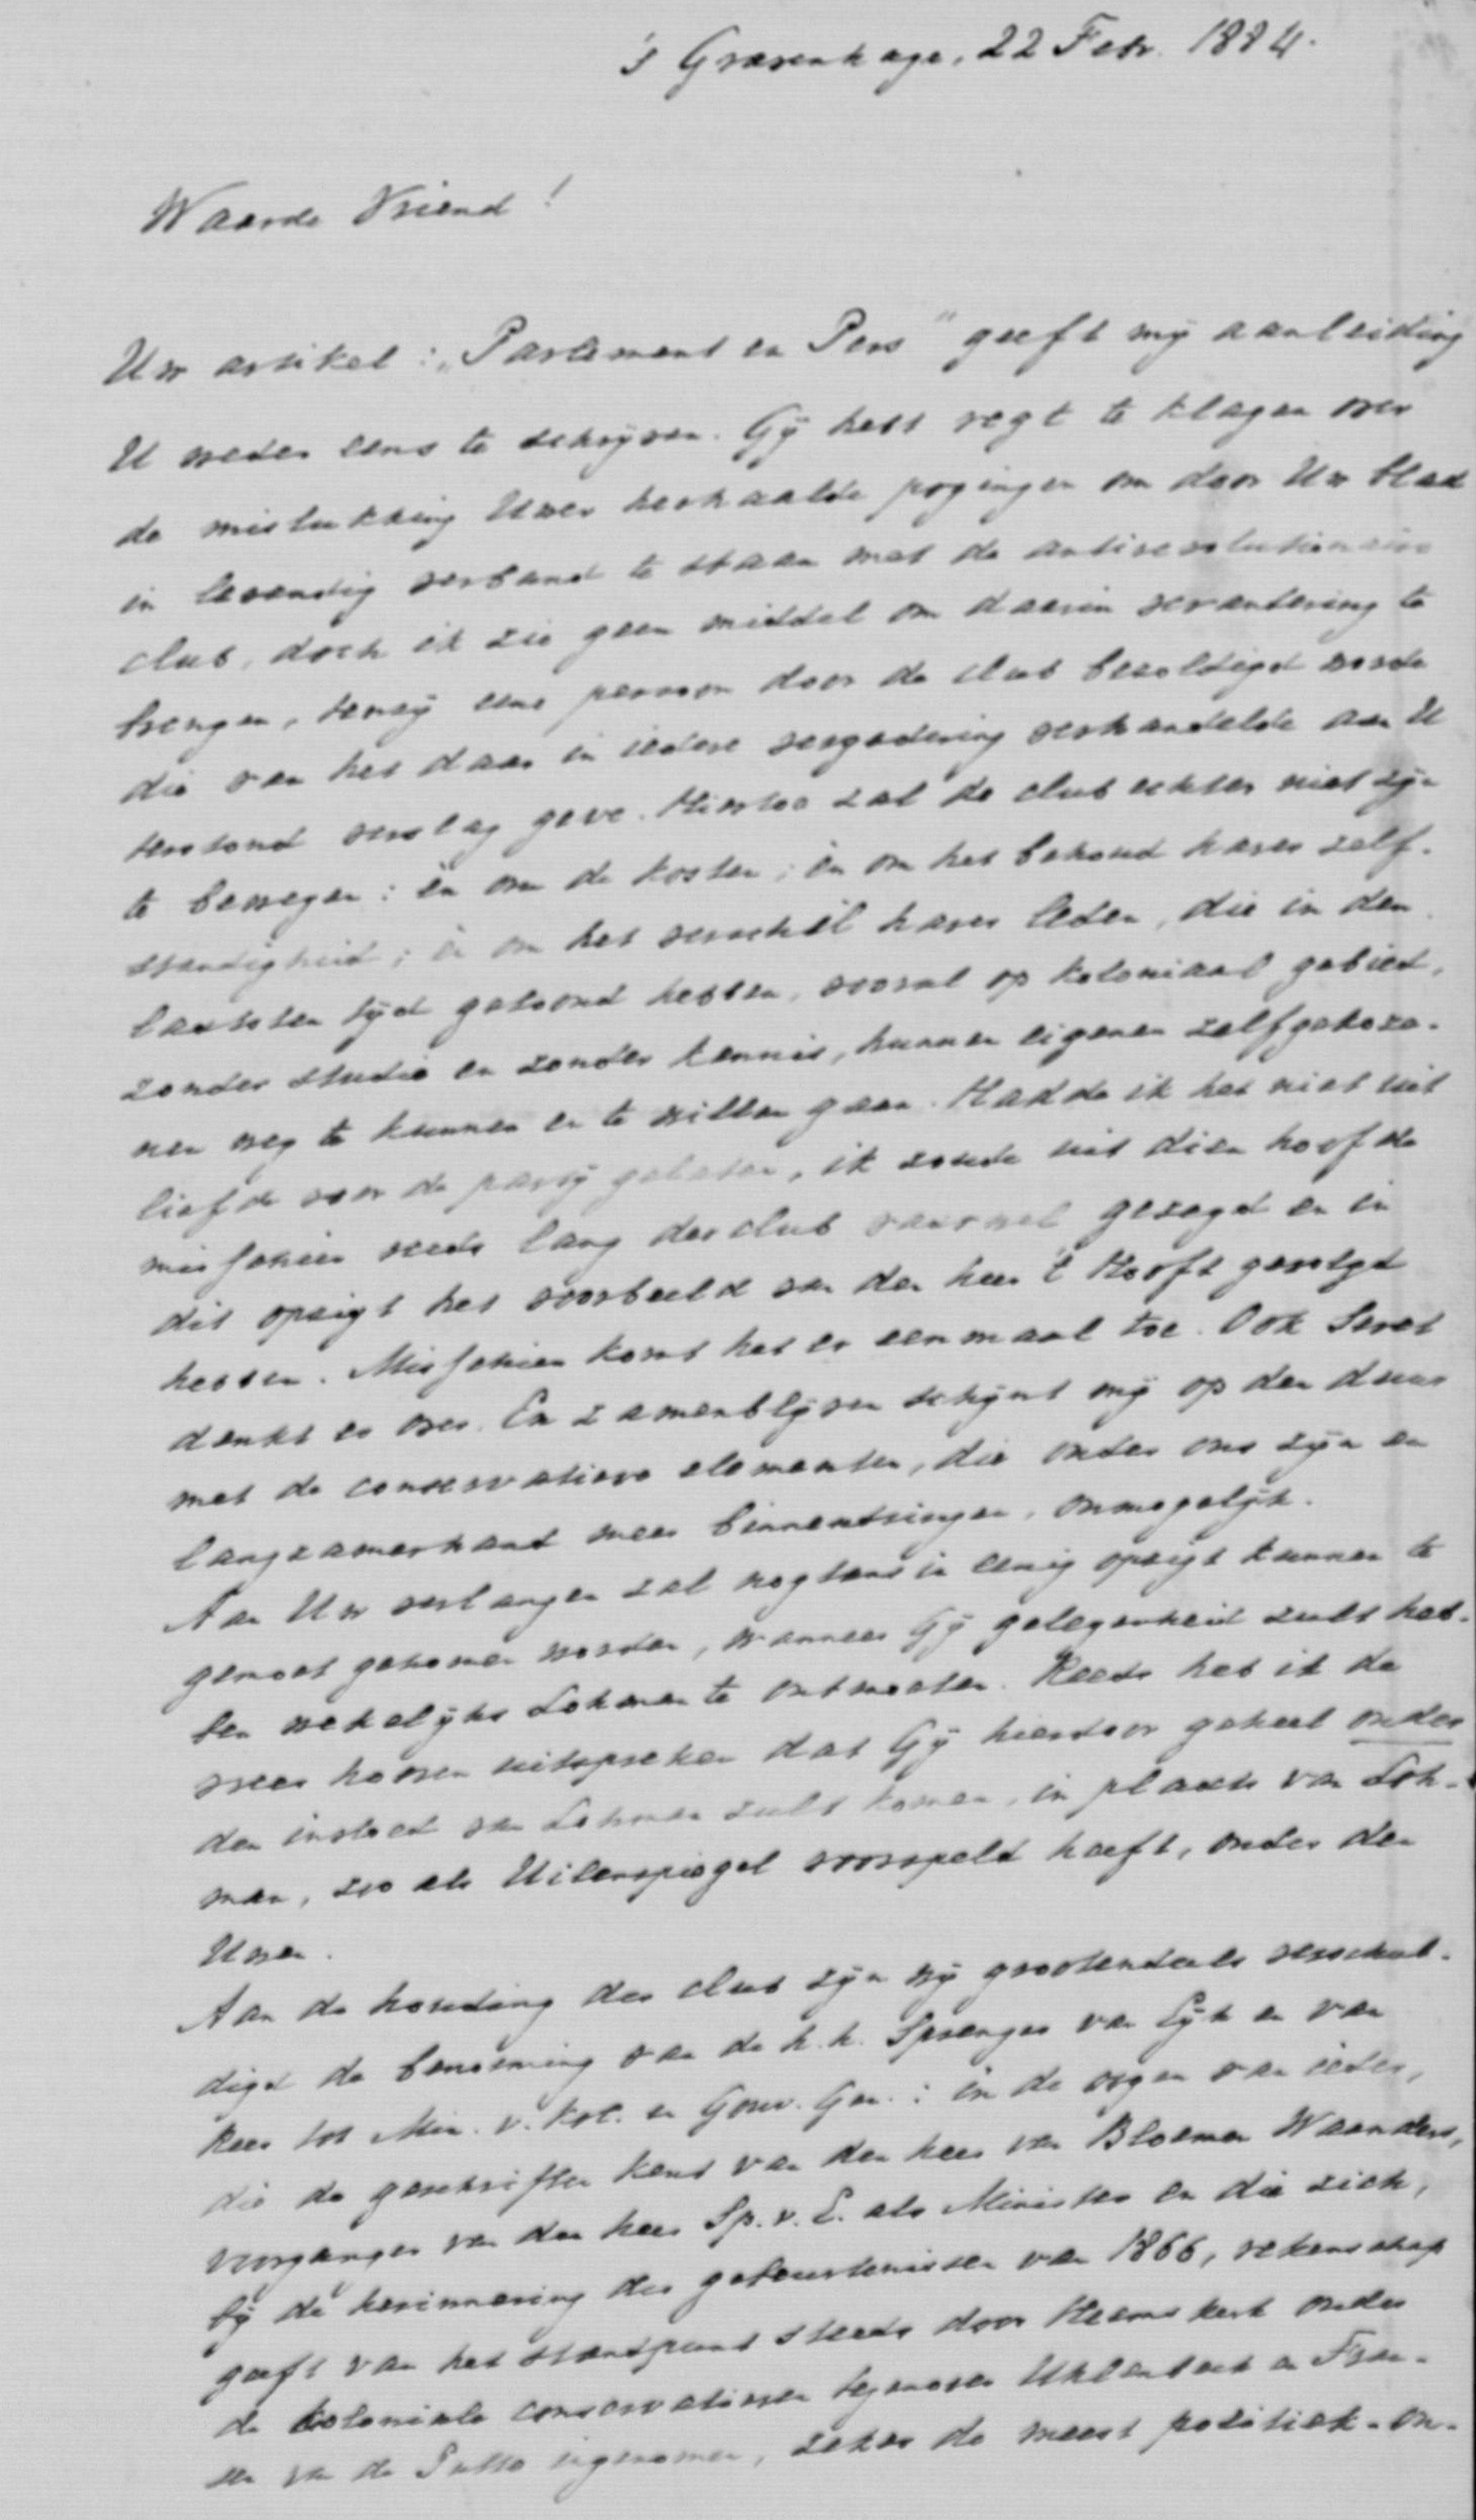 's Gravenhage, 22 Febr. 1884.
Waarde Vriend!
Uw artikel: „Parlement en Pers" geeft mij aanleiding
U weder eens te schrijven. Gij hebt regt te klagen over
de mislukking Uwer herhaalde pogingen om door Uw blad
in levendig verband te staan met de antirevolutionaire
club, doch ik zie geen middel om daarin verandering te
brengen, tenzij eene persoon door de club bezoldigd worde
die van het daar in iedere vergadering verhandelde aan U
terstond verslag geve. Hiertoe zal de club echter niet zijn
te bewegen: èn om de kosten; èn om het behoud harer zelf-
standigheid; èn om het verschil harer leden, die in den
laatsten tijd getoond hebben, vooral op koloniaal gebied,
zonder studie en zonder kennis, hunnen eigenen zelfgekoze-
nen weg te kunnen en te willen gaan. Hadde ik het niet uit
liefde voor de partij gelaten, ik zoude uit dien hoofde
misschien reeds lang der club vaarwel gezegd en in
dit opzigt het voorbeeld van den heer 't Hooft gevolgd
hebben. Misschien komt het er eenmaal toe. Ook Seret
denkt er over. En zamenblijven schijnt mij op den duur
met de conservatieve elementen, die onder ons zijn en
langzamerhand meer binnendringen, onmogelijk.
Aan Uw verlangen zal nogtans in eenig opzigt kunnen te
gemoet gekomen worden, wanneer Gij gelegenheid zult heb-
ben wekelijks Lohman te ontmoeten. Reeds heb ik de
vrees hooren uitspreken dat Gij hierdoor geheel onder
den invloed van Lohman zult komen, in plaats van Loh-
man, zoo als Uilenspiegel voorspeld heeft, onder den
Uwen.
Aan de houding der club zijn wij grootendeels verschul-
digd de benoeming van de h.h. Sprenger van Eijk en van
Rees tot Min. v. Kol. en Gouv. Gen.: in de oogen van ieder,
die de geschriften kent van den heer van Bloemen Waanders,
voorganger van den heer Sp. v. E. als Minister en die zich,
bij de herinnering der gebeurtenissen van 1866, rekenschap
geeft van het standpunt steeds door Heemskerk onder
de koloniale conservatieven tegenover Uhlenbeck en Fran-
sen van de Putte ingenomen, zeker de meest politiek-on-